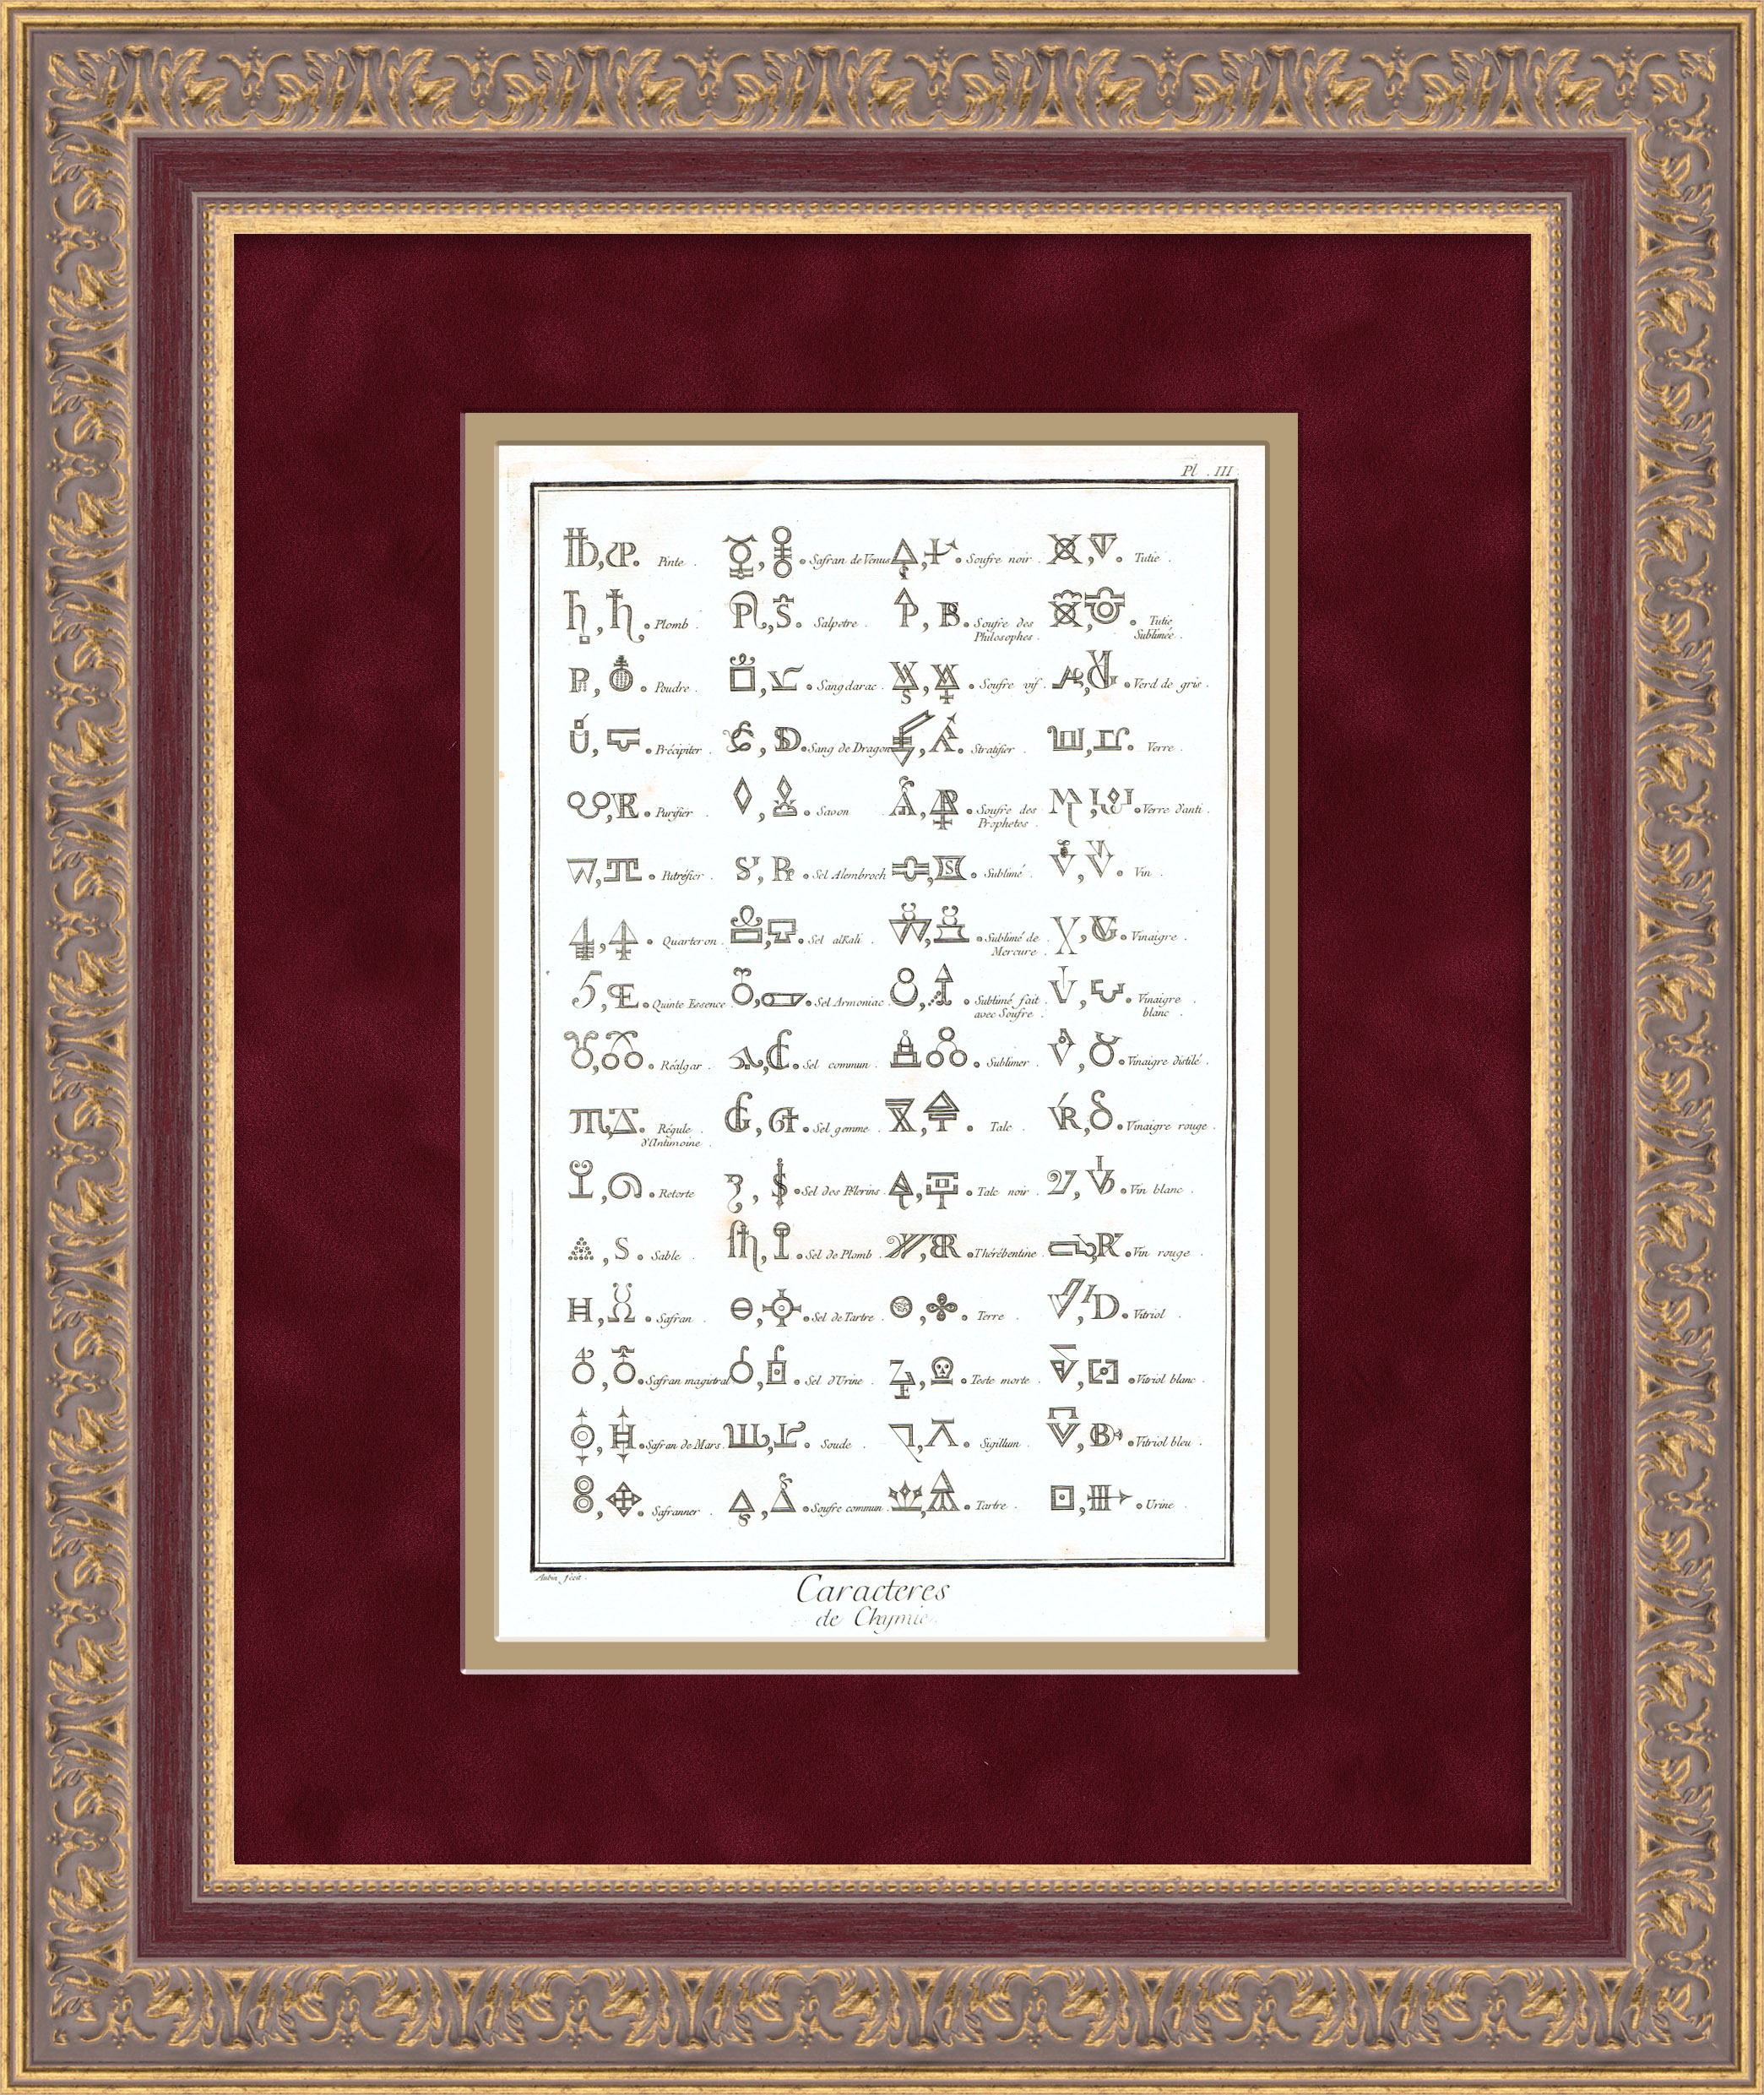 Pl. III.
Pinte. Safran de Venus Soufre noir. Tutie.
Plomb. Salpetre. Soufre des Philosophes. Tutie Sublimée.
Poudre. Sangdarac. Soufre vif. Verd de gris.
Précipiter. Sang de Dragon Stratifier. Verre.
Purifier. Savon. Soufre des Prophetes. Verre d'anti.
Putréfier. Sel Alembroch Sublimé. Vin.
Quarteron. Sel alKali. Sublimé de Mercure. Vinaigre.
Quinte Essence. Sel Armoniac. Sublimé fait avec Soufre. Vinaigre blanc.
Réalgar. Sel commun. Sublimer. Vinaigre distilé.
Régule d'Antimoine. Sel gemme. Talc. Vinaigre rouge.
Retorte Sel des Pèlerins. Talc noir. Vin blanc.
Sable. Sel de Plomb. Thérébentine. Vin rouge.
Safran. Sel de Tartre. Terre. Vitriol.
Safran magistral Sel d'Urine. Teste morte. Vitriol blanc.
Safran de Mars. Soude. Sigillum. Vitriol bleu.
Safranner. Soufre commun. Tartre. Urine.
fecit.
Caracteres
de Chymie.